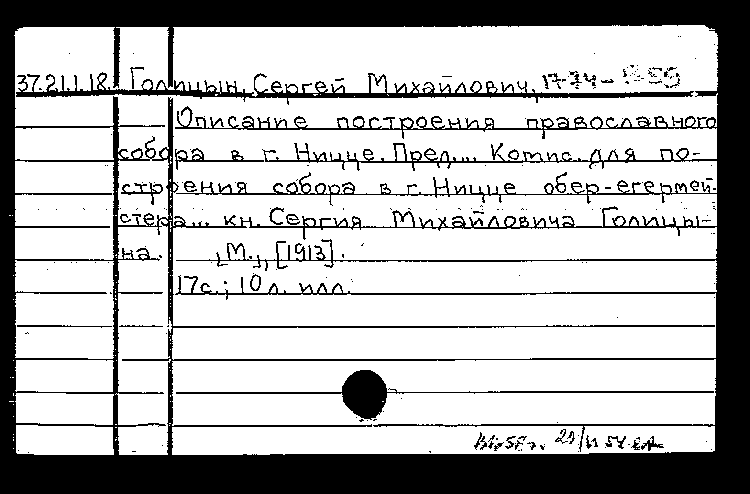 37.21.1.18. Голицын, Сергей Михайлович, 1774-
Описание построения православного
собора в г. Ницце. Пред... Комис. для по-
строения собора в г. Ницце обер-егермей-
стера... кн. Сергия Михайловича Голицы-
на. [М.], [1913].
17с.; 10 л. илл.